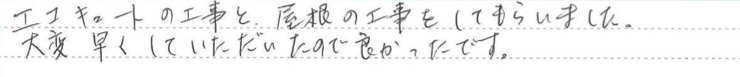 エコキュートの工事と、屋根の工事をしてもらいました。
大変早くしていただいたので良かったです。